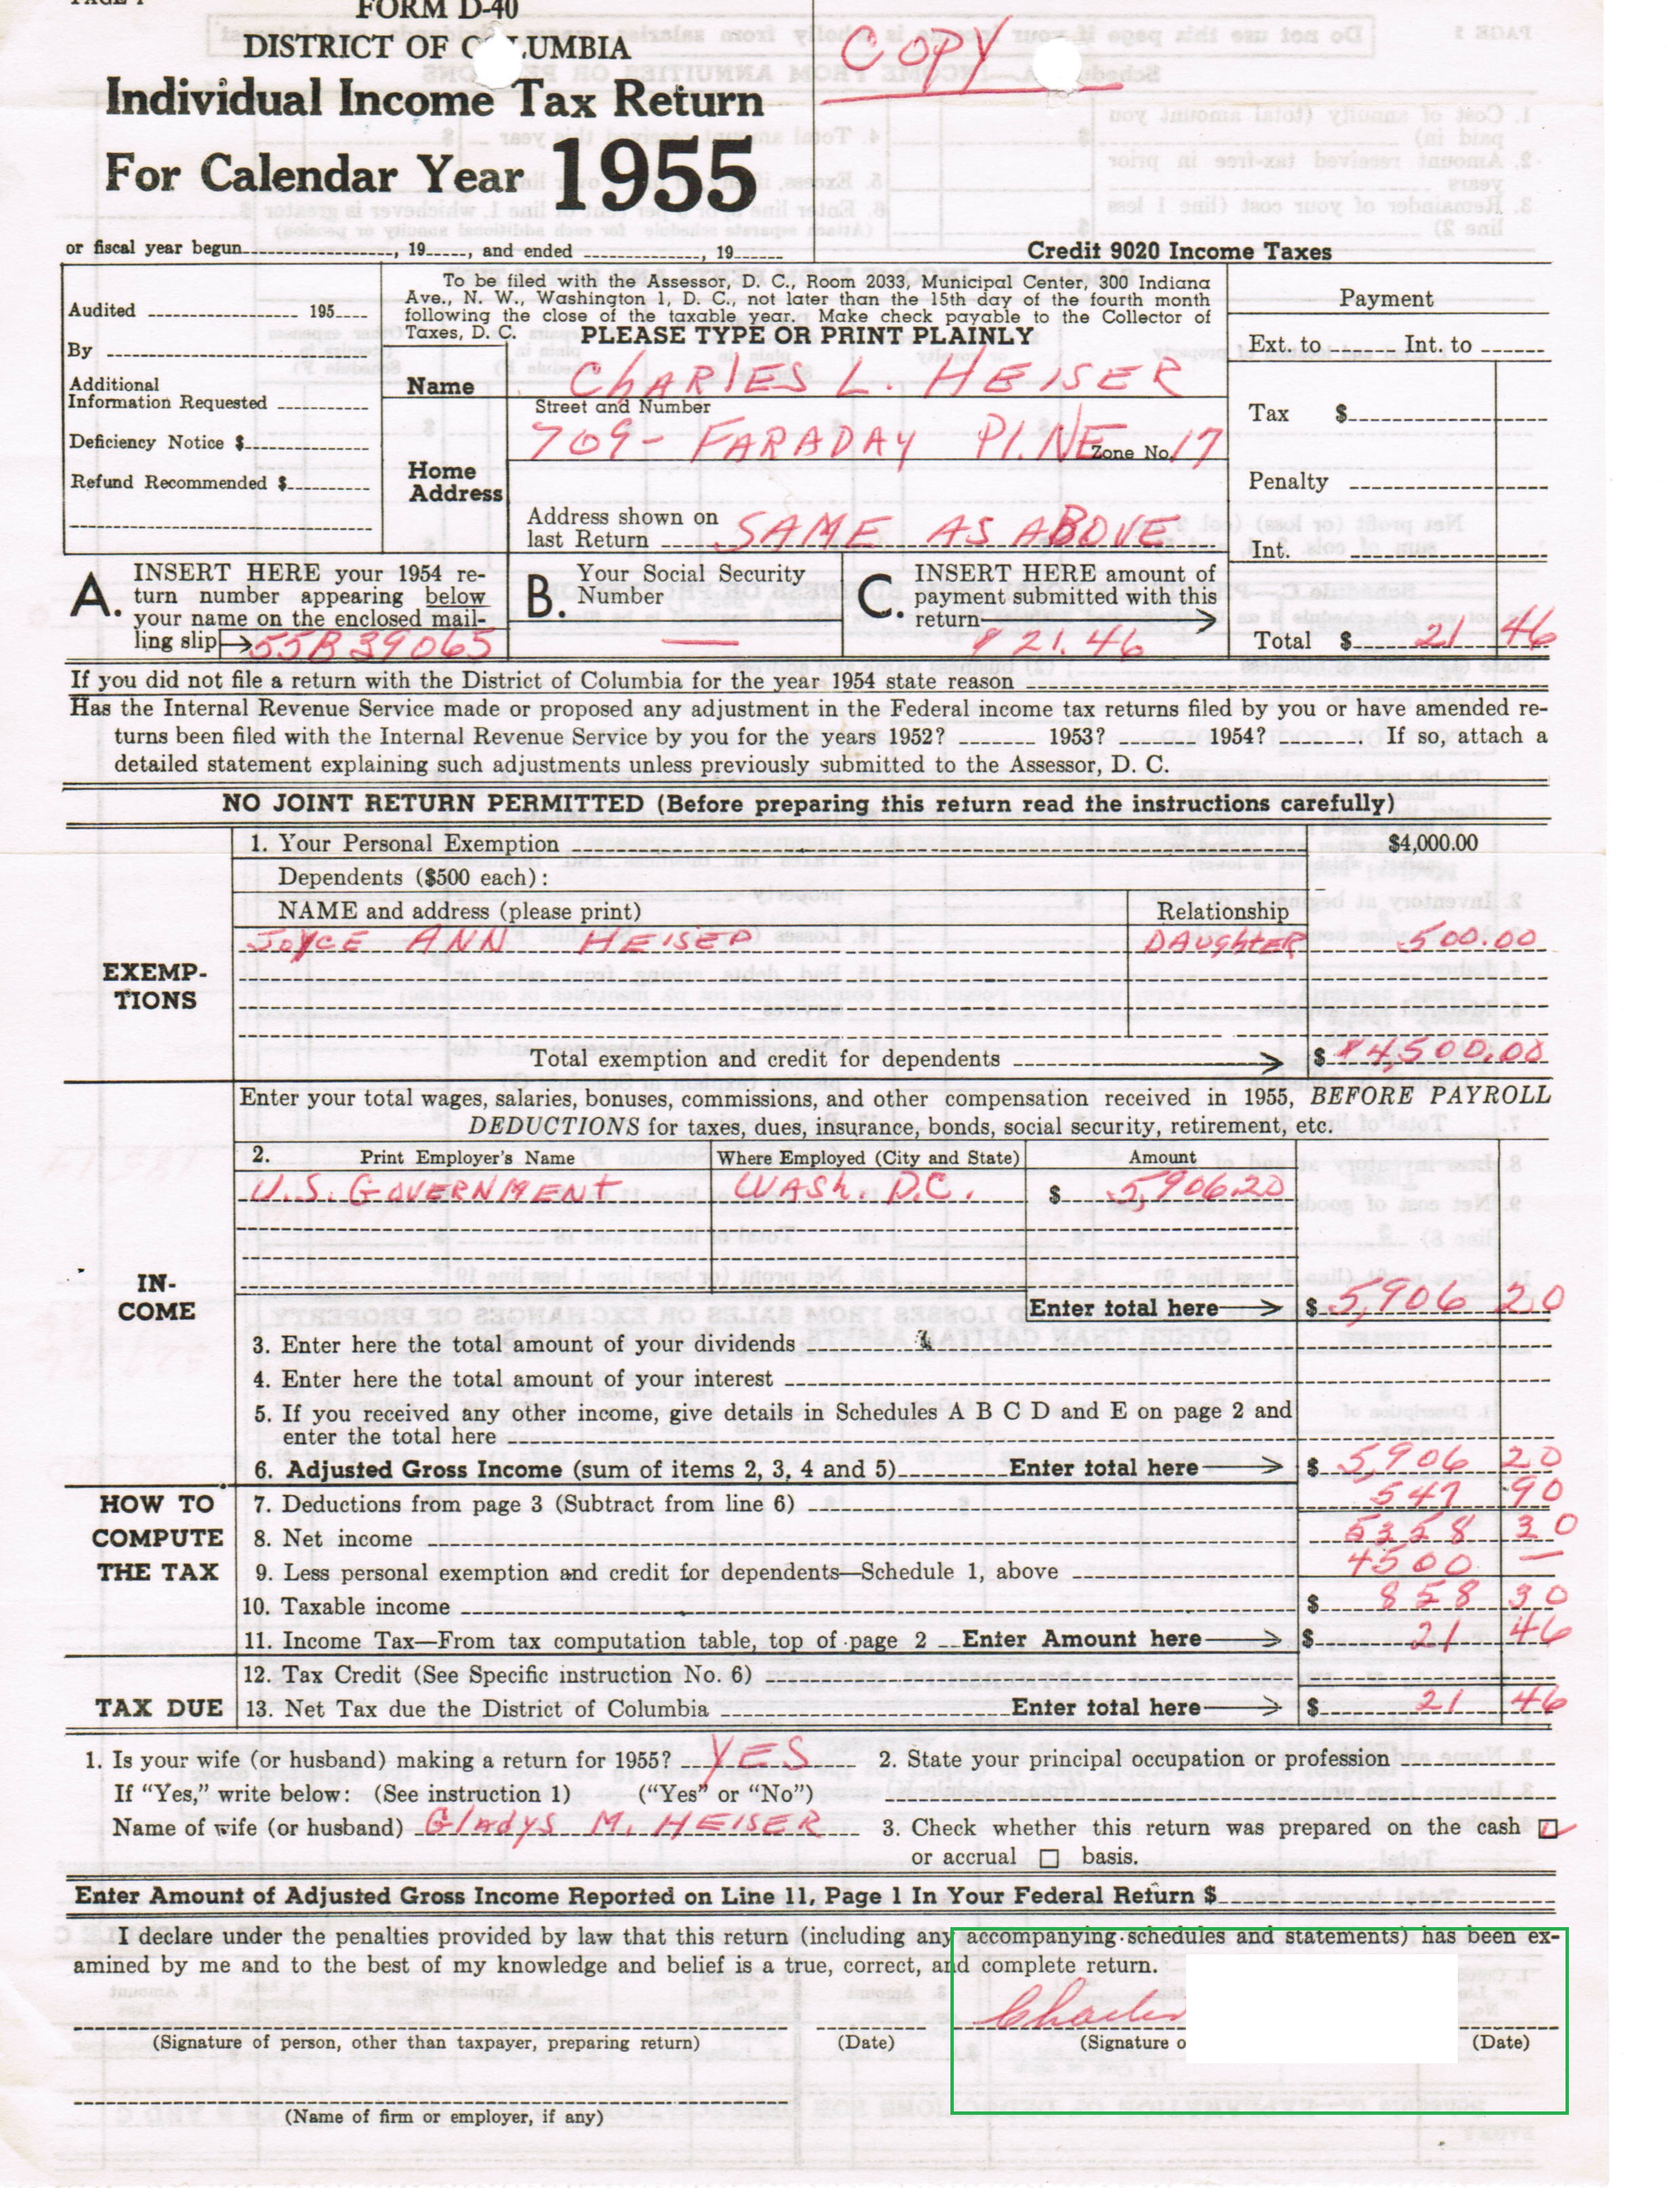 FORM D-40
DISTRICT OF C LUMBIA
Individual Income Tax Return
For Calendar Year 1955
or fiscal year begun ............, 19....., and ended ............, 19......
COPY
Credit 9020 Income Taxes
Audited ............ 195....
By ............
Additional
Information Requested ............
Deficiency Notice $............
Refund Recommended $............
To be filed with the Assessor, D. C., Room 2033, Municipal Center, 300 Indiana
Ave., N. W., Washington 1, D. C., not later than the 15th day of the fourth month
following the close of the taxable year. Make check payable to the Collector of
Taxes, D. C. PLEASE TYPE OR PRINT PLAINLY
Name CHARLES L. HEISER
Street and Number
709- FARADAY Pl. NE Zone No. 17
Home
Address
Address shown on
last Return SAME AS ABOVE
Payment
Ext. to ...... Int. to ......
Tax $............
Penalty ............
Int. ............
Total $ 21 46
A. INSERT HERE your 1954 re-
turn number appearing below
your name on the enclosed mail-
ling slip→ 55B39065
B. Your Social Security
Number
—
C. INSERT HERE amount of
payment submitted with this
return → $21.46
If you did not file a return with the District of Columbia for the year 1954 state reason ............
Has the Internal Revenue Service made or proposed any adjustment in the Federal income tax returns filed by you or have amended re-
turns been filed with the Internal Revenue Service by you for the years 1952? ....... 1953? ....... 1954? ........ If so, attach a
detailed statement explaining such adjustments unless previously submitted to the Assessor, D. C.
NO JOINT RETURN PERMITTED (Before preparing this return read the instructions carefully)
EXEMP-
TIONS
1. Your Personal Exemption ............ $4,000.00
Dependents ($500 each):
NAME and address (please print) Relationship
JOYCE ANN HEISER DAUGHTER 500.00
Total exemption and credit for dependents ............ → $ $4,500.00
IN-
COME
Enter your total wages, salaries, bonuses, commissions, and other compensation received in 1955, BEFORE PAYROLL
DEDUCTIONS for taxes, dues, insurance, bonds, social security, retirement, etc.
2. Print Employer's Name Where Employed (City and State) Amount
U.S. GOVERNMENT WASH. D.C. $ 5,906.20
Enter total here → $ 5,906 20
3. Enter here the total amount of your dividends ............
4. Enter here the total amount of your interest ............
5. If you received any other income, give details in Schedules A B C D and E on page 2 and
enter the total here ............
6. Adjusted Gross Income (sum of items 2, 3, 4 and 5) ........ Enter total here → $ 5,906 20
HOW TO
COMPUTE
THE TAX
7. Deductions from page 3 (Subtract from line 6) ............ 547 90
8. Net income ............ 5358 30
9. Less personal exemption and credit for dependents—Schedule 1, above ............ 4500 —
10. Taxable income ............ $ 858 30
11. Income Tax—From tax computation table, top of page 2 ... Enter Amount here → $ 21 46
TAX DUE
12. Tax Credit (See Specific instruction No. 6) ............
13. Net Tax due the District of Columbia ............ Enter total here → $ 21 46
1. Is your wife (or husband) making a return for 1955? YES
If "Yes," write below: (See instruction 1) ("Yes" or "No")
Name of wife (or husband) Gladys M. HEISER
2. State your principal occupation or profession ............
3. Check whether this return was prepared on the cash ☑
or accrual ☐ basis.
Enter Amount of Adjusted Gross Income Reported on Line 11, Page 1 In Your Federal Return $............
I declare under the penalties provided by law that this return (including any accompanying schedules and statements) has been ex-
amined by me and to the best of my knowledge and belief is a true, correct, and complete return.
Charles
(Signature of person, other than taxpayer, preparing return) (Date) (Signature o (Date)
(Name of firm or employer, if any)